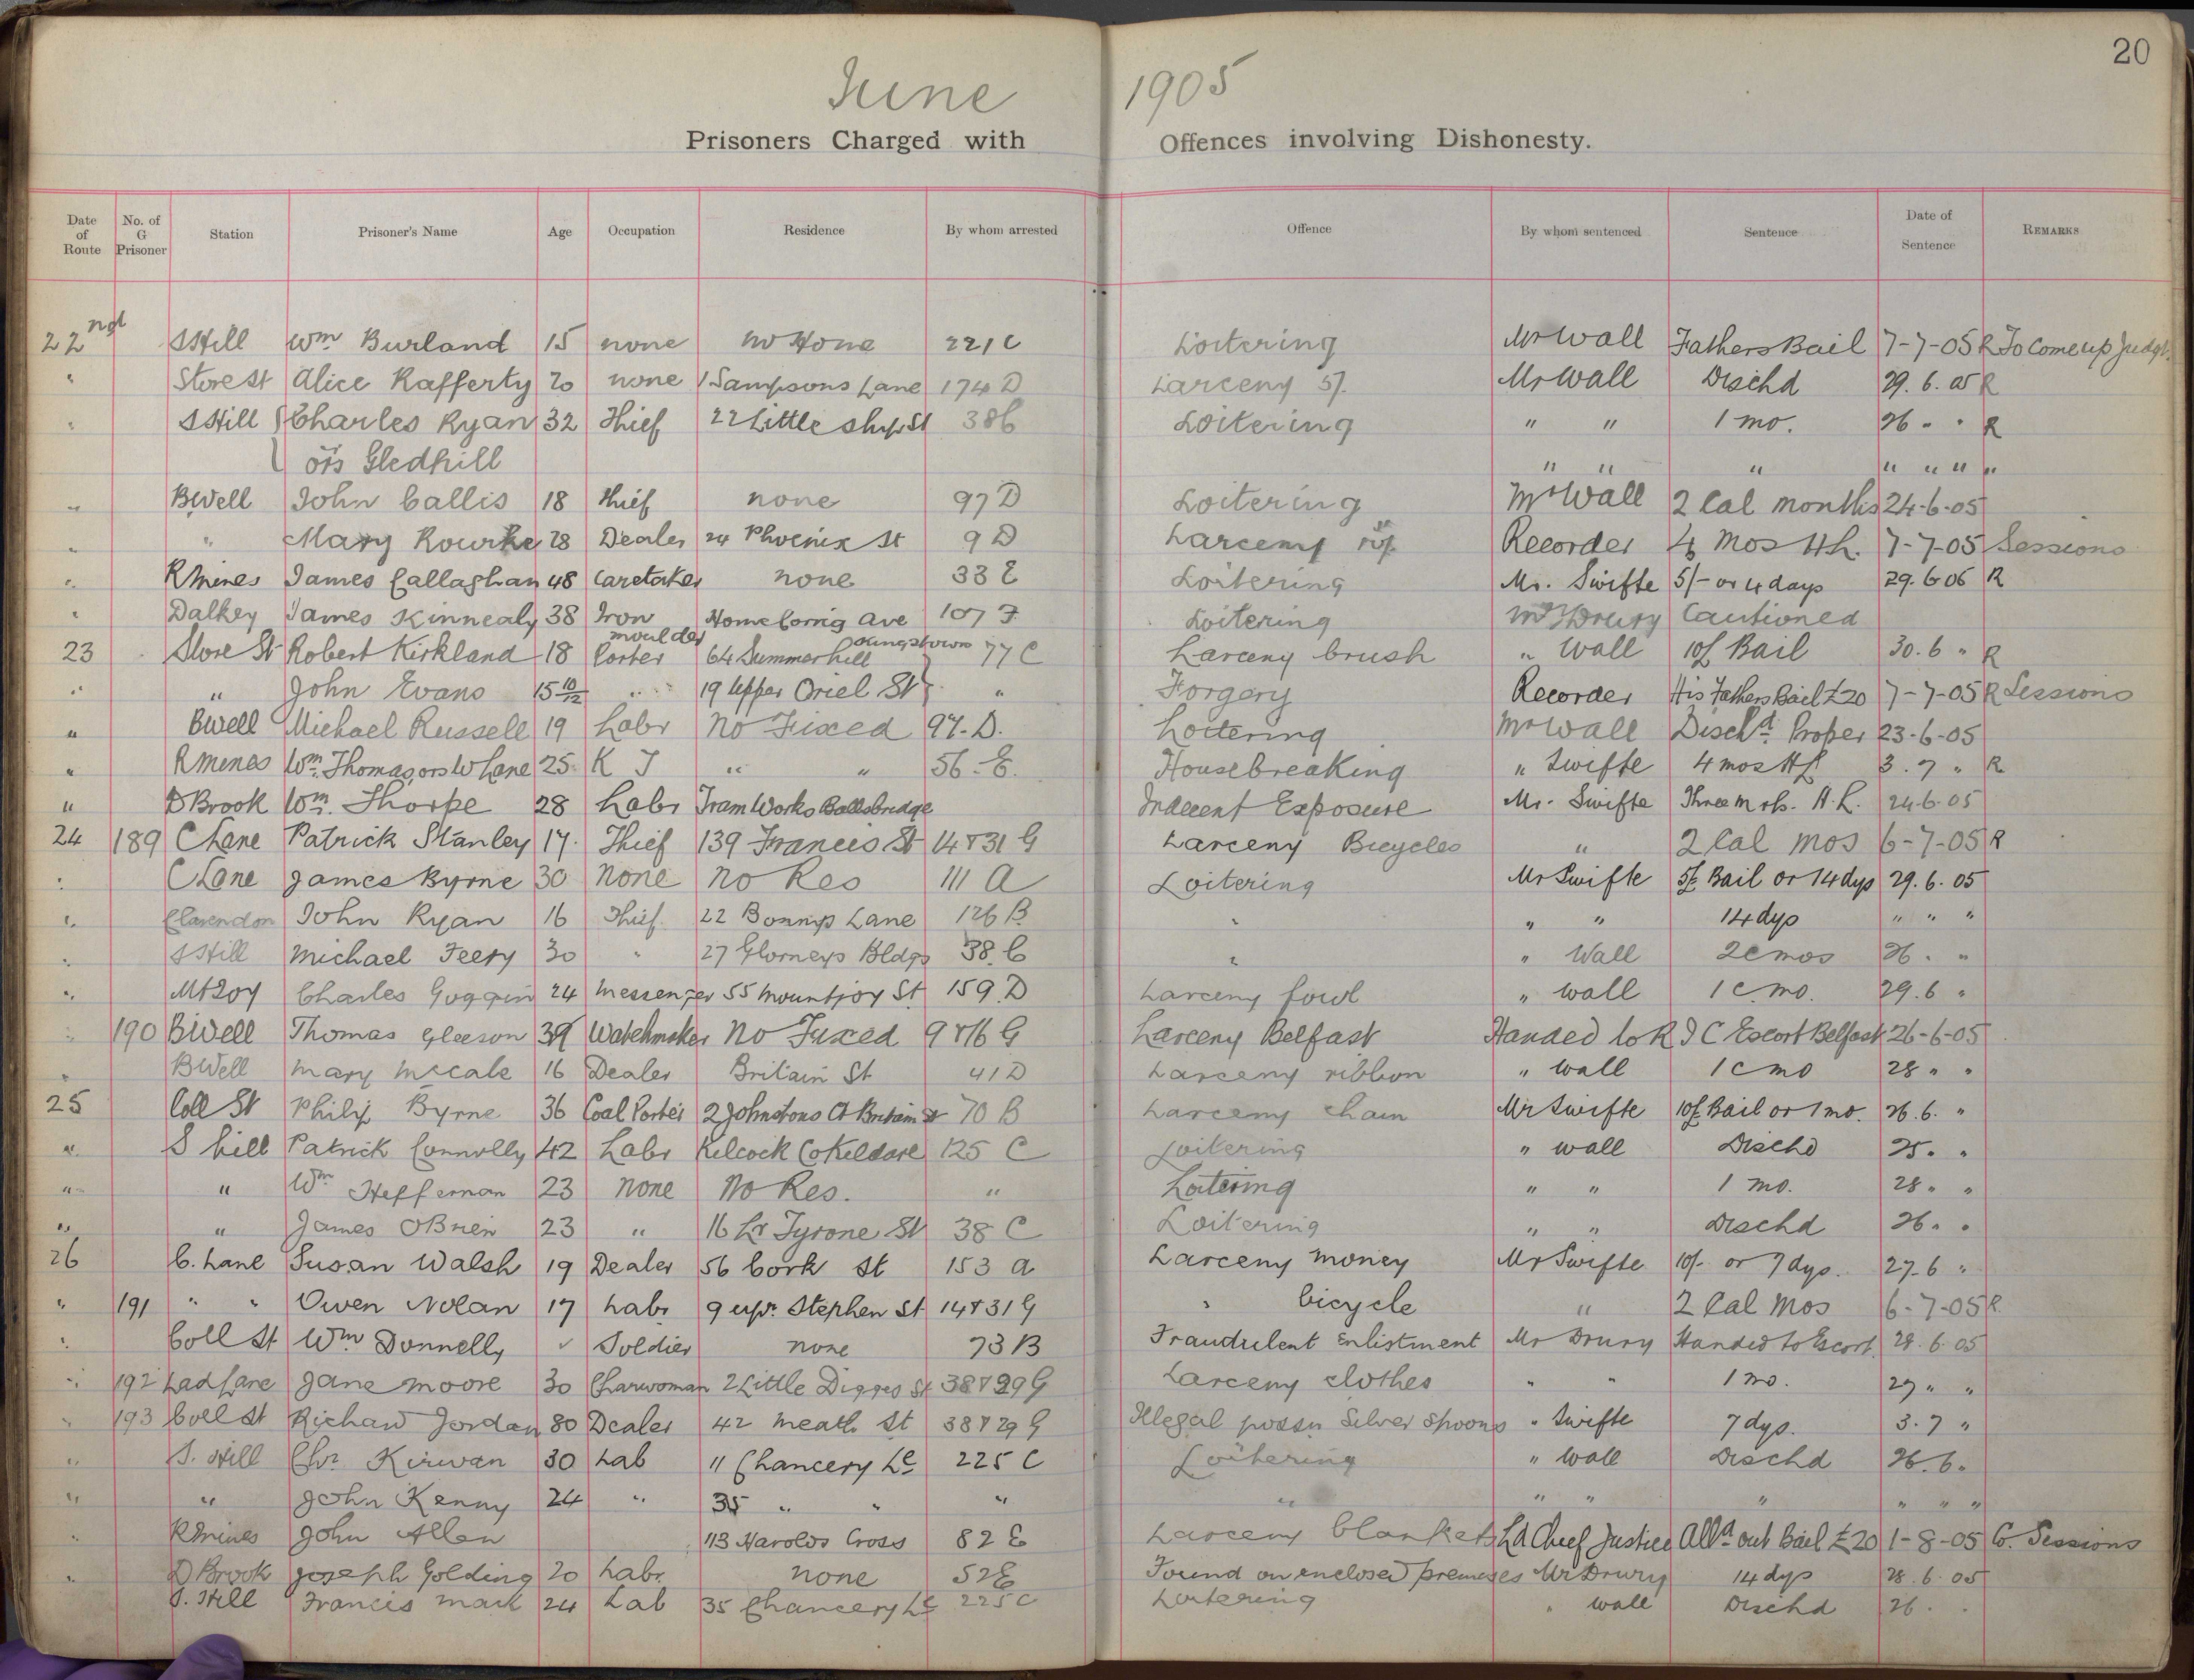 20
June 1905
Prisoners Charged with Offences involving Dishonesty.
Date of Route No. of G Prisoner Station Prisoner's Name Age Occupation Residence By whom arrested Offence By whom sentenced Sentence Date of Sentence REMARKS
22nd SHill Wm Burland 15 none no Home 221 C Loitering Mr Wall Fathers Bail 7-7-05 R To Come up Judgt.
" Store St Alice Rafferty 20 none 1 Sampsons Lane 174 D Larceny 5/. Mr Wall Dischd 29. 6. 05 R
" SHill Charles Ryan 32 Thief 22 Little Ship St 38C Loitering " " 1 mo. 26 " " R
ors Gledhill " " " " " " "
" BWell John Callis 18 thief none 97 D Loitering Mr Wall 2 Cal months 24-6-05
" " Mary Rourke 28 Dealer 24 Phoenix St 9 D Larceny Recorder 4 Mos HL. 7-7-05 Sessions
" RMines James Callaghan 48 Caretaker none 33 E Loitering Mr. Swifte 5/- or 4 days 29. 6 06 R
" Dalkey James Kinnealy 38 Iron moulder Home Corrig Ave Kingstown 107 F Loitering Mr Drury Cautioned
23 Store St Robert Kirkland 18 Porter 64 Summerhill 77 C Larceny brush " Wall 10/ Bail 30. 6 " R
" " John Evans 15 10/12 " 19 Upper Oriel St " Forgery Recorder His Fathers Bail £20 7-7-05 R Sessions
" BWell Michael Russell 19 Labr No Fixed 97. D. Loitering Mr Wall Dischd. Proper 23-6-05
" RMines Wm. Thomas ors W Lane 25 K J " " 56. E. Housebreaking " Swifte 4 mos HL 3. 7 " R
" DBrook Wm. Thorpe 28 Labr Tram Works Ballsbridge Indecent Exposure Mr. Swifte Three mths. H.L. 24.6.05
24 189 C Lane Patrick Stanley 17. Thief 139 Francis St 14 & 31 G Larceny Bicycles " 2 Cal mos 6-7-05 R
" C Lane James Byrne 30 None No Res 111 A Loitering Mr Swifte 5/- Bail or 14 dys 29. 6. 05
" Clarendon John Ryan 16 Thief. 22 Bonnys Lane 126 B. " " " 14 dys " " "
" SHill Michael Feery 30 " 27 Glorneys Bldgs 38. C " " Wall 2 c mos 26 . "
" Mtjoy Charles Goggin 24 Messenger 55 Mountjoy St 159. D Larceny fowl " Wall 1 c. mo. 29. 6 "
" 190 BWell Thomas Gleeson Watchmaker No Fixed 9 & 16 G Larceny Belfast Handed to R I C Escort Belfast 26-6-05
" BWell Mary McCabe 16 Dealer Britain St 41 D Larceny ribbon " Wall 1 c mo 28 " "
25 Coll St Philip Byrne 36 Coal Porter 2 Johnstons Ct Britain St 70 B Larceny chain Mr Swifte 10/- Bail or 1 mo. 26. 6. "
" S hill Patrick Connolly 42 Labr Kilcock Co Kildare 125 C Loitering " Wall Dischd 25. "
" " Wm Heffernan 23 None No Res. " Loitering " " 1 mo. 28 " "
" " James OBrien 23 " 16 Lr Tyrone St 38 C Loitering " " Dischd 26. "
26 C. Lane Susan Walsh 19 Dealer 56 Cork St 153 A Larceny money Mr Swifte 10/- or 7 dys. 27. 6 "
" 191 " " Owen Nolan 17 Labr 9 upr. Stephen St 14 & 31 G " bicycle " 2 Cal Mos 6-7-05 R
" Coll St Wm Donnelly Soldier none 73 B Fraudulent Enlistment Mr Drury Handed to Escort. 28. 6. 05
" 192 Lad Lane Jane Moore 30 Charwoman 2 Little Digges St 38 & 29 G Larceny clothes " " 1 mo. 27 " "
" 193 Coll St Richard Jordan 80 Dealer 42 Meath St 38 & 29 G Illegal possn Silver Spoons " Swifte 7 dys. 3. 7 "
" S. Hill Chr. Kirwan 30 Lab 11 Chancery Le 225 C Loitering " Wall Dischd 26. 6.
" " John Kenny 24 " 35 " " " " " " " " " "
" RMines John Allen 113 Harolds Cross 82 E Larceny blankets Ld Chief Justice Alld out Bail £20 1-8-05 C. Sessions
" D Brook Joseph Golding 20 Labr none 52 E Found on enclosed premises Mr Drury 14 dys 28. 6. 05
S. Hill Francis Mack 24 Lab 35 Chancery Le 225 C Loitering " Wall Dischd 26 . .